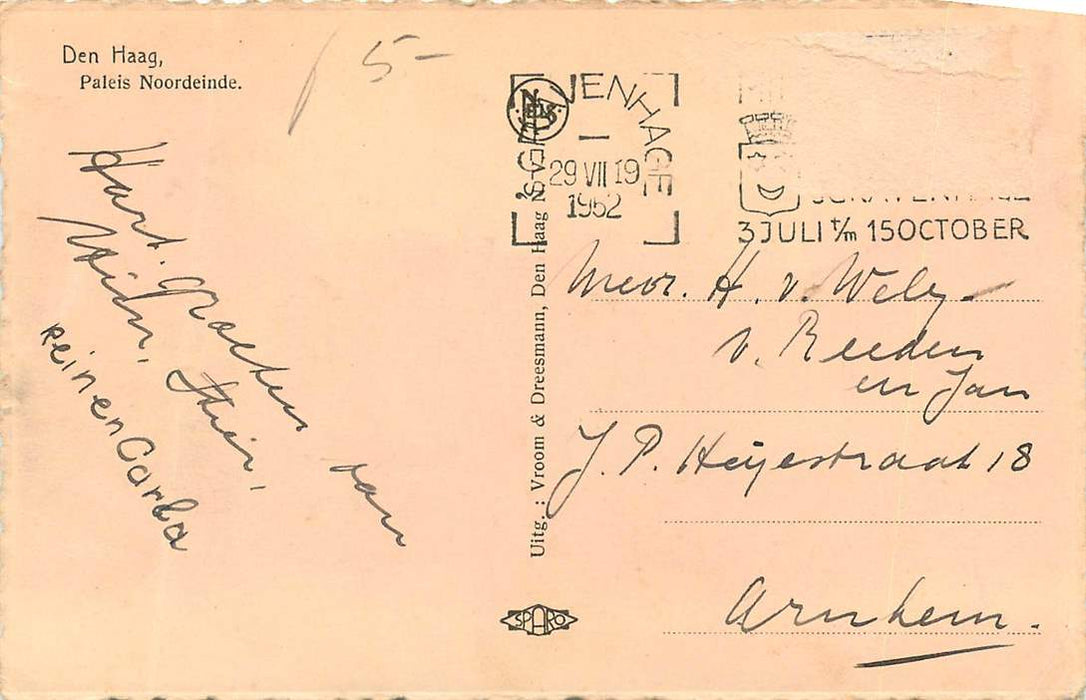 Den Haag,
Paleis Noordeinde.
5-
Hart. Groeten van
Wim, Thea,
Rein en Carla
Uitg. : Vroom & Dreesmann, Den Haag N
'S-GRAVENHAGE
29 VII 19
1962
3 JULI t/m 15 OCTOBER
Mevr. H. v. Wely-
v. Reeden
en Jan
J. P. Heyestraat 18
Arnhem.
SPARO